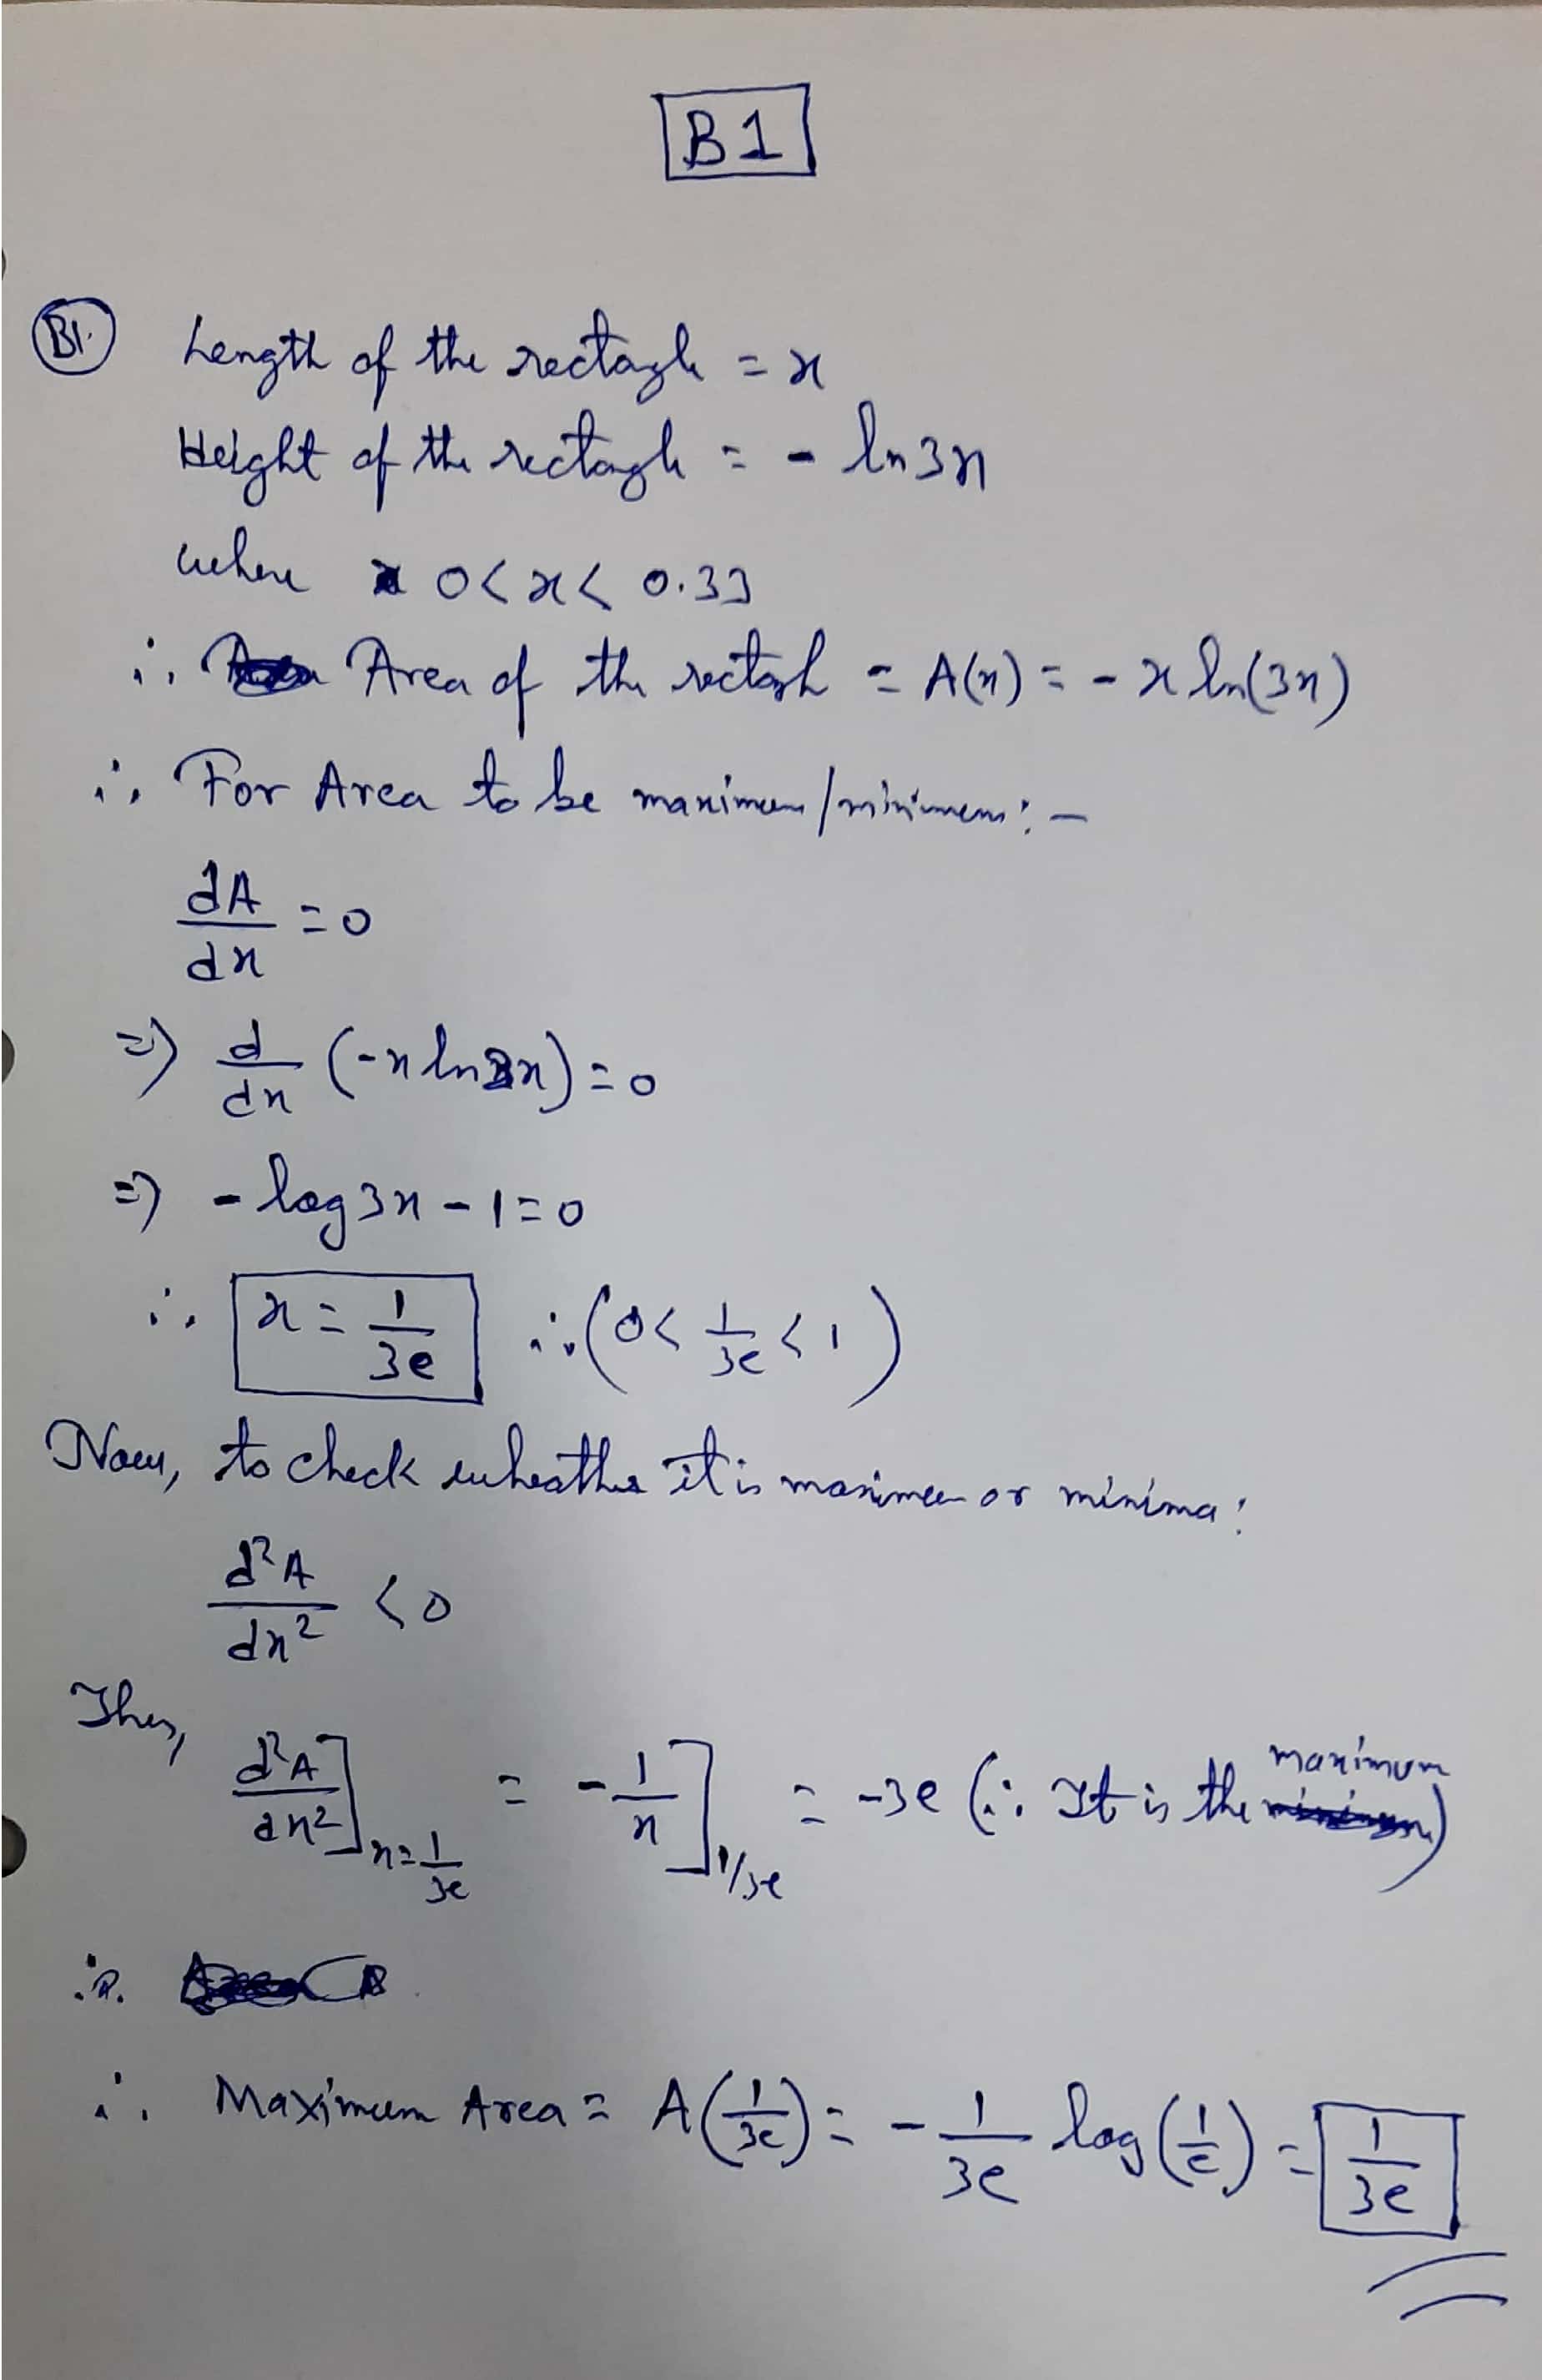 B1
B1. Length of the rectagle = x
Height of the rectagle = - ln 3x
where 0 < x < 0.33
∴ Area of the rectagle = A(x) = - x ln(3x)
∴ For Area to be maximum/minimum: -
dA/dx = 0
=> d/dx (-x ln 3x) = 0
=> - log 3x - 1 = 0
∴ x = 1/3e ∴ (0 < 1/3e < 1)
Now, to check wheather it is maximum or minima:
d²A/dx² < 0
Thus,
d²A/dx²]x=1/3e = -1/x]1/3e = -3e (∴ It is the maximum)
∴
∴ Maximum Area = A(1/3e) = - 1/3e log(1/e) = 1/3e